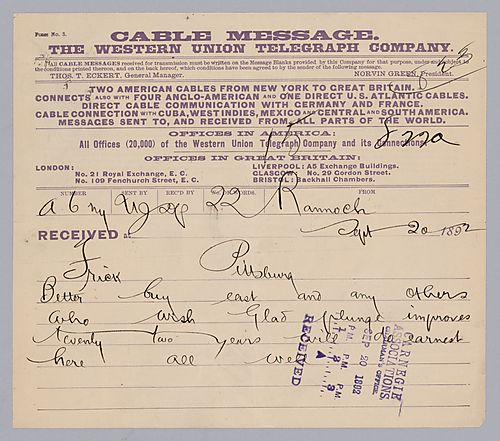 FORM No. 3.
CABLE MESSAGE.
THE WESTERN UNION TELEGRAPH COMPANY.
All CABLE MESSAGES received for transmission must be written on the Message Blanks provided by this Company for that purpose, under and subject to
the conditions printed thereon, and on the back hereof, which conditions have been agreed to by the sender of the following message.
THOS. T. ECKERT, General Manager. NORVIN GREEN, President.
TWO AMERICAN CABLES FROM NEW YORK TO GREAT BRITAIN.
CONNECTS ALSO WITH FOUR ANGLO-AMERICAN AND ONE DIRECT U.S. ATLANTIC CABLES.
DIRECT CABLE COMMUNICATION WITH GERMANY AND FRANCE.
CABLE CONNECTION WITH CUBA, WEST INDIES, MEXICO AND CENTRAL AND SOUTH AMERICA.
MESSAGES SENT TO, AND RECEIVED FROM ALL PARTS OF THE WORLD.
OFFICES IN AMERICA:
All Offices (20,000) of the Western Union Telegraph Company and its Connections.
OFFICES IN GREAT BRITAIN:
LONDON:
No. 21 Royal Exchange, E. C.
No. 109 Fenchurch Street, E. C.
LIVERPOOL: A5 Exchange Buildings.
GLASGOW: No. 29 Gordon Street.
BRISTOL: Backhall Chambers.
NUMBER SENT BY REC'D BY No. WORDS. FROM
22 Rannoch
RECEIVED at Sept 20 1892
Frick Pittsburg
Better buy east and any others
who wish Glad plunge improves
twenty two years earnest
here all well
CARNEGIE
ASSOCIATIONS
CHAIRMAN'S OFFICE.
SEP 20 1892
P.M. P.M. P.M.
1 2 3
RECEIVED